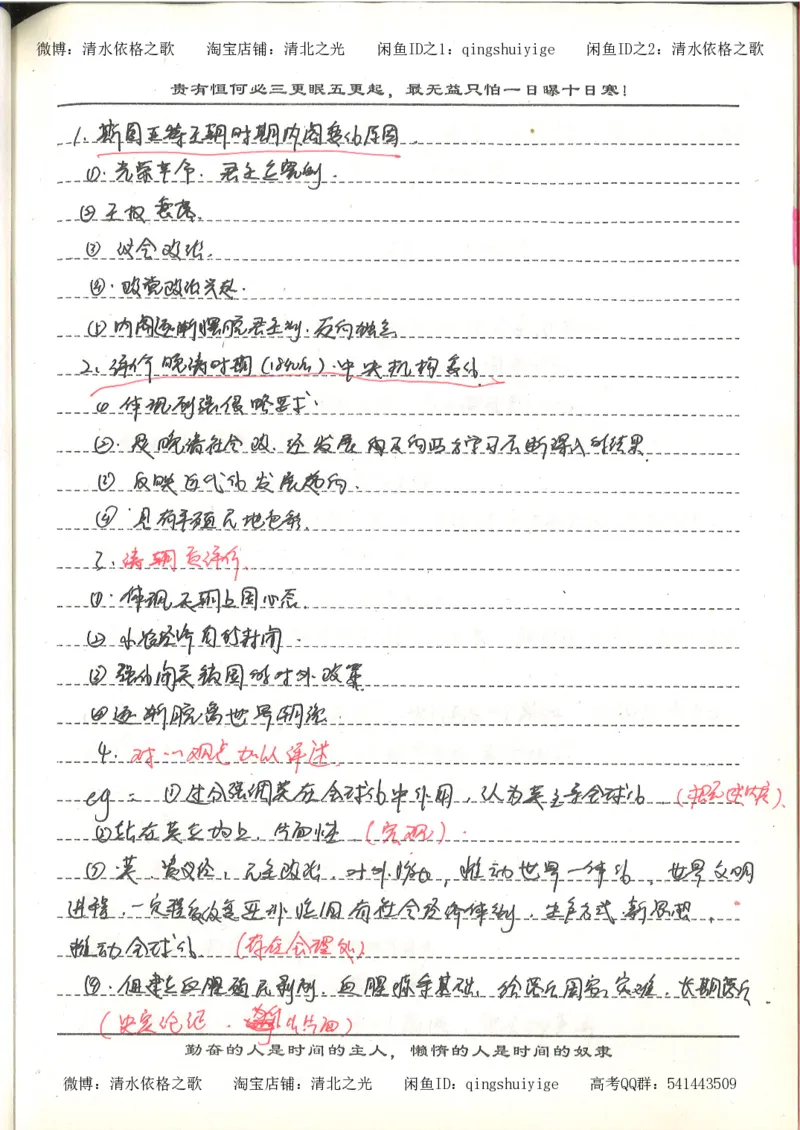 微博：清水依格之歌 淘宝店铺：清北之光 闲鱼ID之1：qingshuiyige 闲鱼ID之2：清水依格之歌
贵有恒何必三更眠五更起，最无益只怕一日曝十日寒！
1. 斯图亚特王朝时期内阁变化原因.
①. 光荣革命. 君主立宪制.
② 王权衰落.
③ 议会政治.
④. 政党政治兴起.
⑤ 内阁逐渐摆脱君主制. 反向独立
2. 评价晚清时期(1840后).中央机构变化.
① 体现列强侵略要求.
②. 是晚清社会政.经发展和不向西方学习不断深入的结果.
③ 反映近代化发展趋向.
④ 具有半殖民地色彩.
3. 清朝贡评价.
①. 体现天朝上国心态.
② 小农经济自的封闭.
③ 强化闭关锁国的对外政策
④ 逐渐脱离世界潮流.
4. 对一观点加以评述.
eg： ①过分强调英在全球化中作用，认为英主导全球化.
②站在英立场上，片面性 (客观).
③ 英.资义经，民主政治. 对外移动，推动世界一体化，世界文明
进程，一定程度改变亚非拉旧有社会经济体制，生产方式，新思想，
推动全球化. (存在合理处)
④. 但建立血腥殖民剥削，血腥掠夺基础，给落后国家灾难，长期落后.
勤奋的人是时间的主人，懒惰的人是时间的奴隶
微博：清水依格之歌 淘宝店铺：清北之光 闲鱼ID：qingshuiyige 高考QQ群：541443509